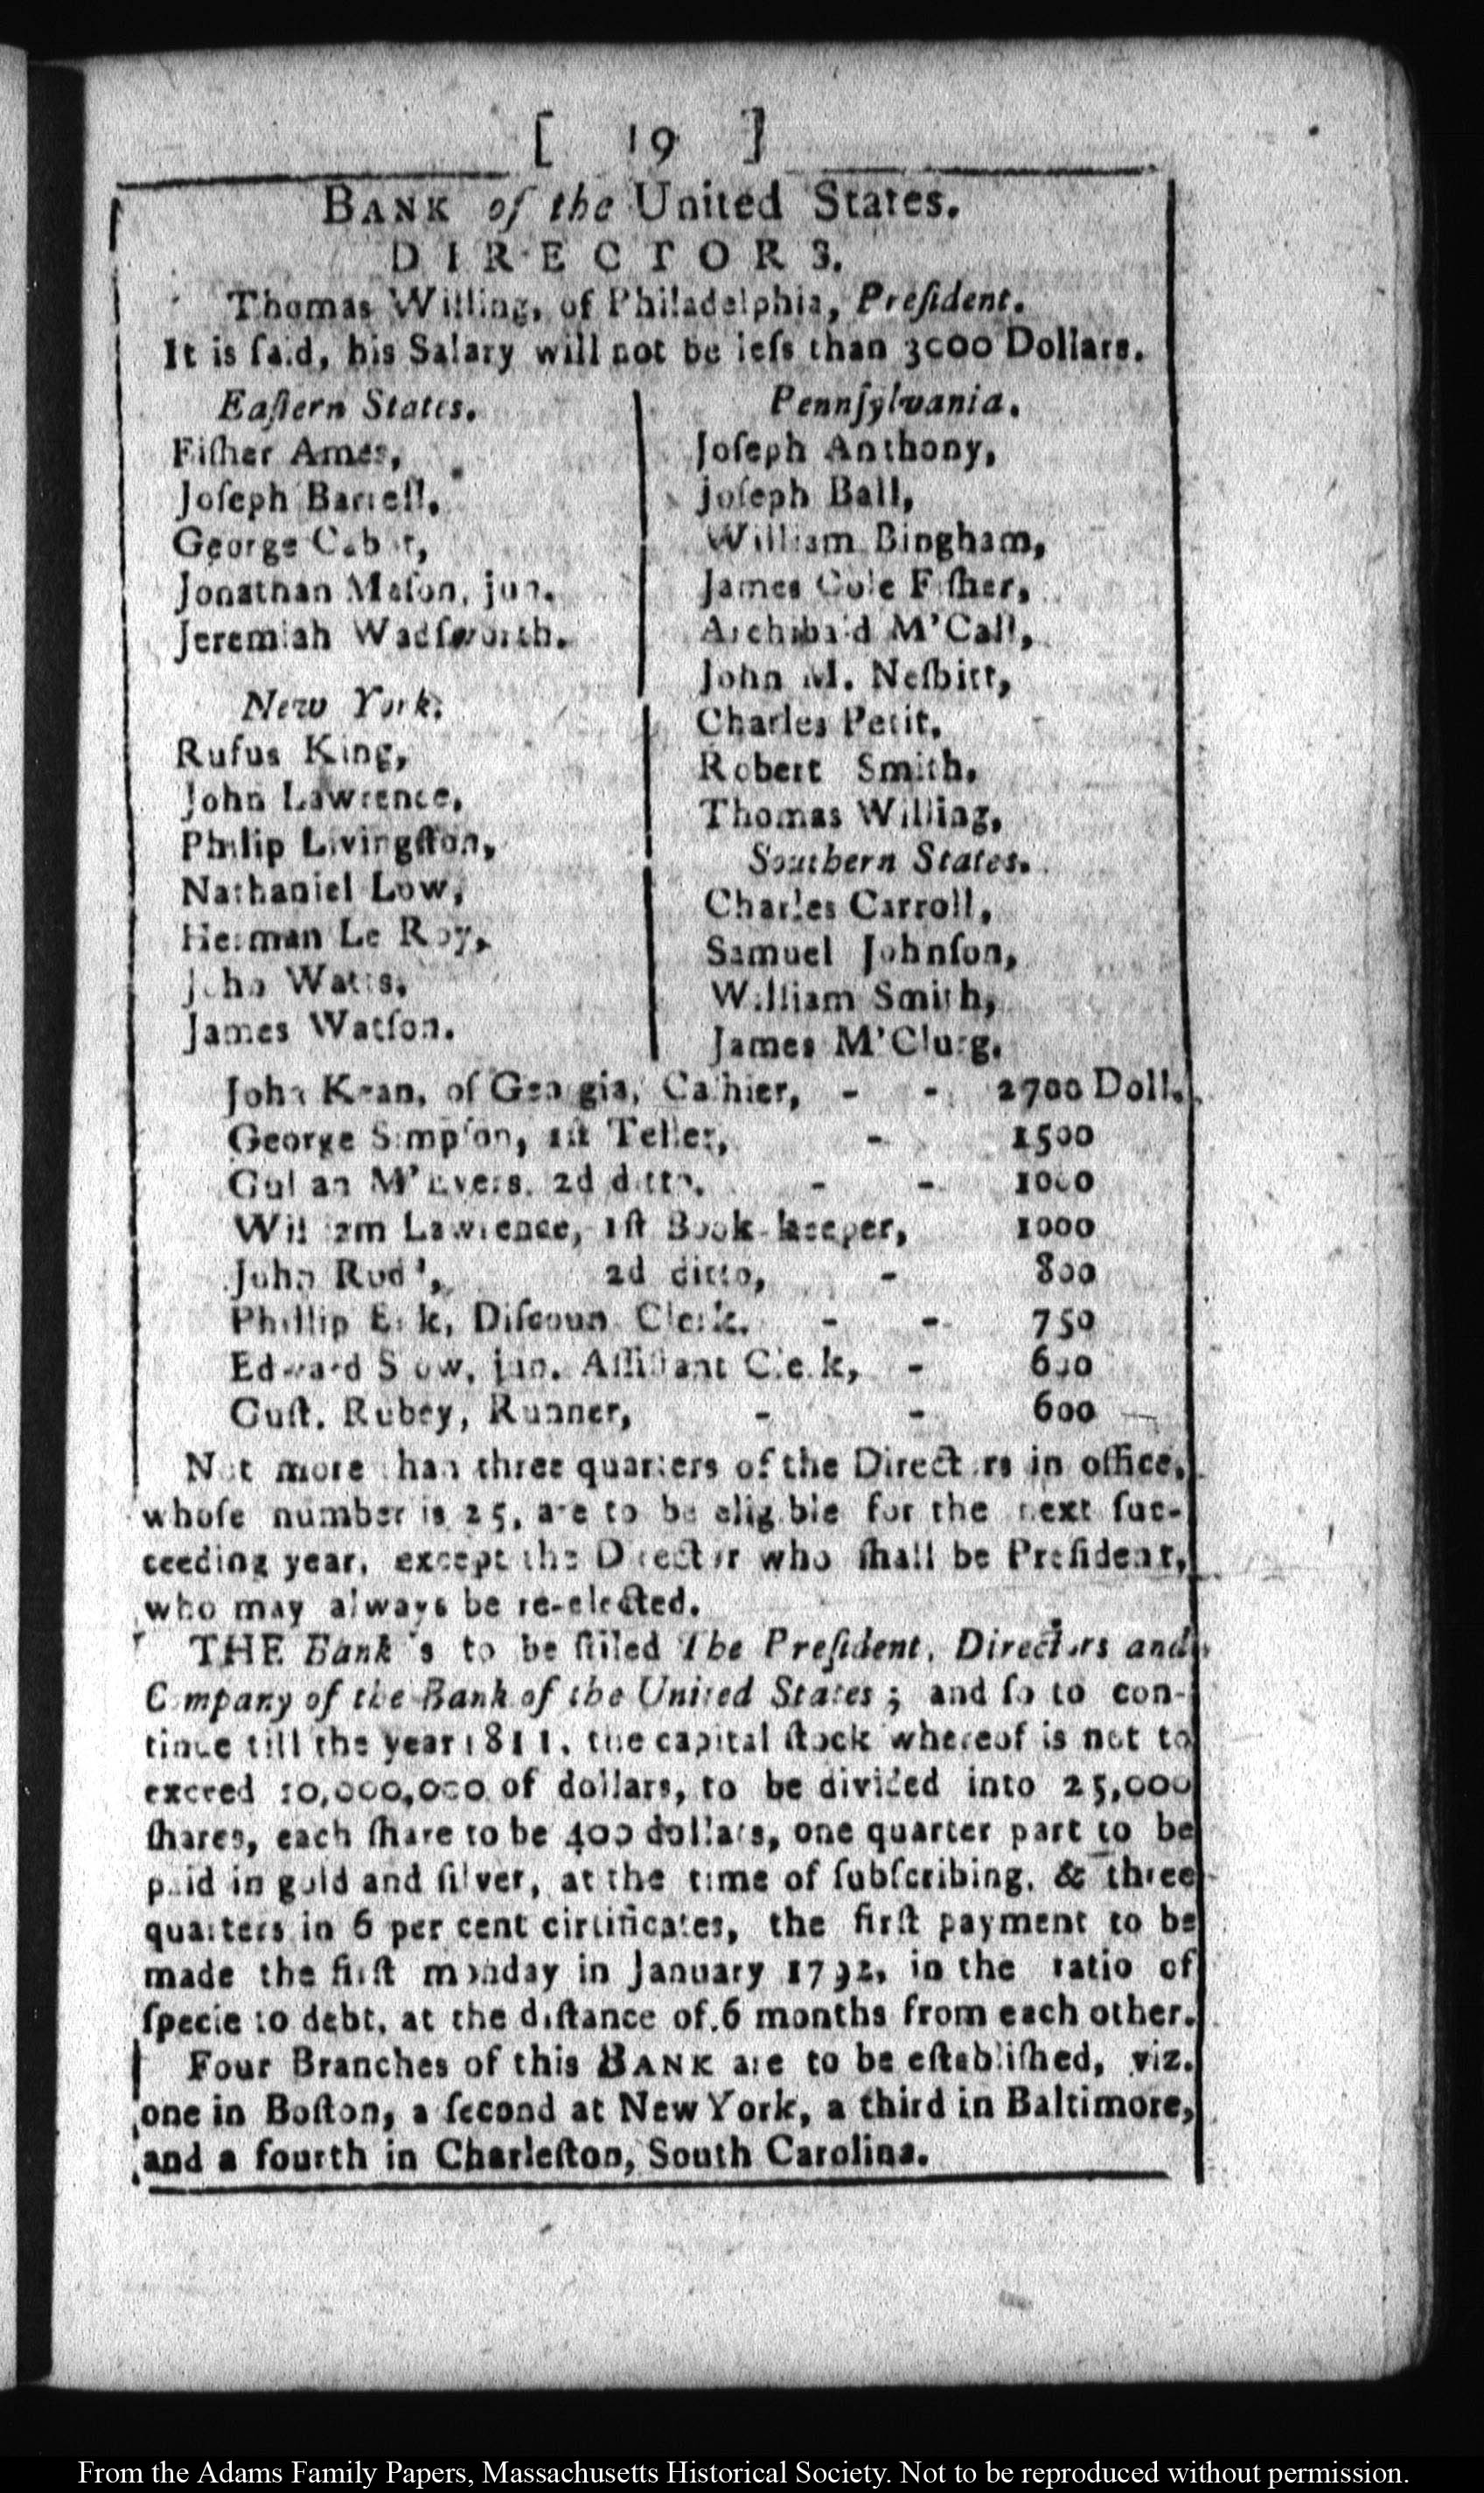 [ 19 ]
BANK of the United States.
DIRECTORS.
Thomas Willing, of Philadelphia, Preſident.
It is ſaid, his Salary will not be leſs than 3000 Dollars.
Eaſtern States.
Fiſher Ames,
Joſeph Barrell,
George Cabot,
Jonathan Maſon, jun.
Jeremiah Wadſworth.
New York.
Rufus King,
John Lawrence,
Philip Livingſton,
Nathaniel Low,
Herman Le Roy,
John Watts,
James Watſon.
Pennſylvania.
Joſeph Anthony,
Joſeph Ball,
William Bingham,
James Cole Fiſher,
Archibald M'Call,
John M. Neſbitt,
Charles Petit,
Robert Smith,
Thomas Willing,
Southern States.
Charles Carroll,
Samuel Johnſon,
William Smith,
James M'Clurg.
John Kean, of Georgia, Caſhier, - - 2700 Doll.
George Simpſon, 1ſt Teller, - 1500
M'Evers, 2d ditto, - - 1000
William Lawrence, 1ſt Book-keeper, 1000
John 2d ditto, - 800
Phillip Diſcount Clerk, - - 750
Edward jun. Aſſiſtant Clerk, - 600
Guſt. Rubey, Runner, - - 600
Not more than three quarters of the Directors in office,
whoſe number is 25, are to be eligible for the next ſuc-
ceeding year, except the Director who ſhall be Preſident,
who may always be re-elected.
THE Bank is to be ſtiled The Preſident, Directors and
Company of the Bank of the United States; and ſo to con-
tinue till the year 1811, the capital ſtock whereof is not to
exceed 10,000,000 of dollars, to be divided into 25,000
ſhares, each ſhare to be 400 dollars, one quarter part to be
paid in gold and ſilver, at the time of ſubſcribing, & three
quarters in 6 per cent cirtificates, the firſt payment to be
made the firſt monday in January 1792, in the ratio of
ſpecie to debt, at the diſtance of 6 months from each other.
Four Branches of this BANK are to be eſtabliſhed, viz.
one in Boſton, a ſecond at New York, a third in Baltimore,
and a fourth in Charleſton, South Carolina.
From the Adams Family Papers, Massachusetts Historical Society. Not to be reproduced without permission.